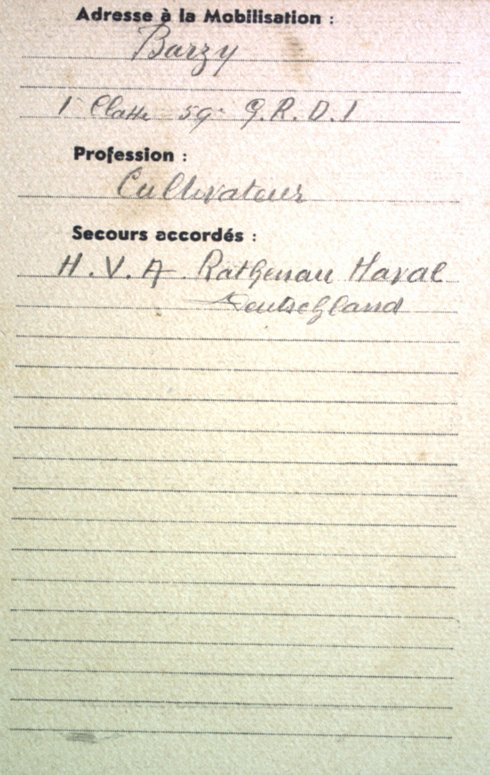 Adresse à la Mobilisation :
Barzy
1 Classe 59e G.R.D.I
Profession :
Cultivateur
Secours accordés :
H.V.A. Rathenau Haval
Deutschland